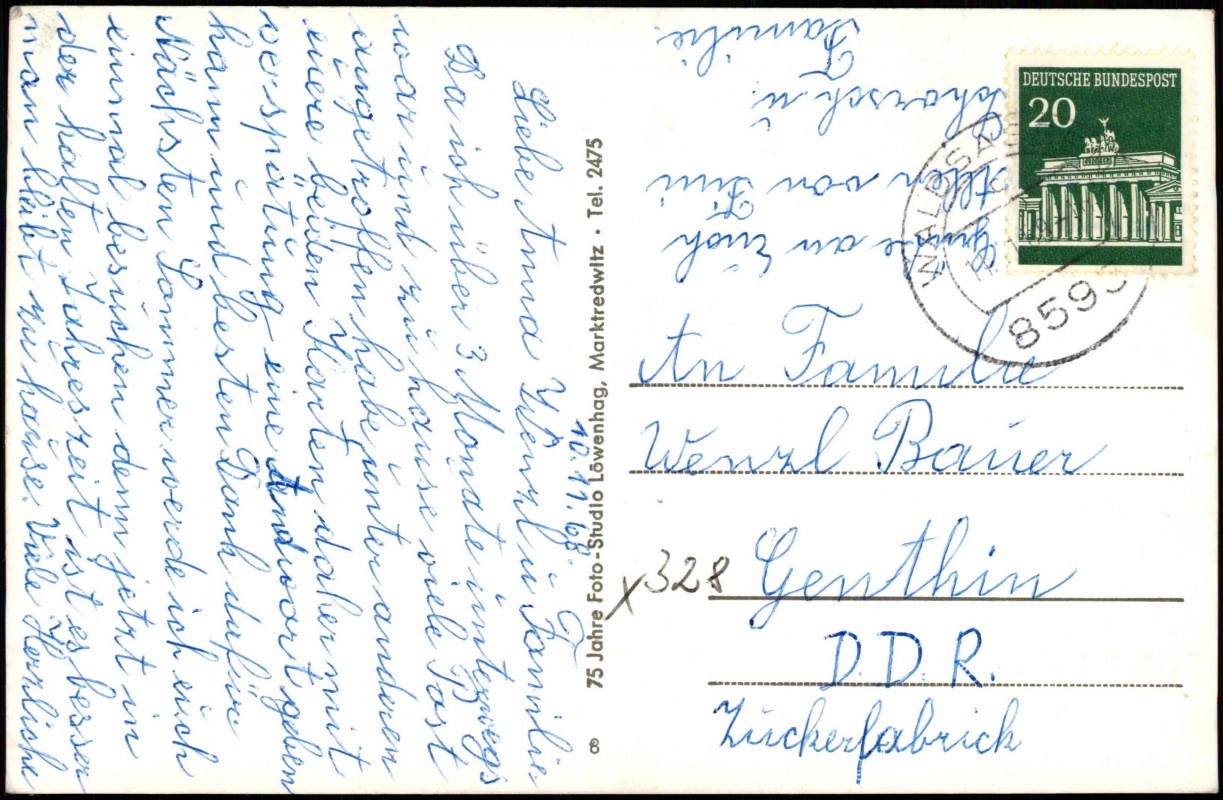 10.11.68
Liebe Anna Wenzl u. Familie
Da ich über 3 Monate unterwegs
war und zu hause viele Post
angetroffen habe unter anderen
eüere beiden Karten daher mit
verspätüng eine andwort geben
kann und besten Dank dafür.
Nächsten Sommer werde ich eüch
einmal besüchen denn jetzt in
der kalten Jahreszeit ist es besser
man bleibt zu haüse. Viele Herzliche
Grüße an Eüch
von Fini
Schorsch u.
Familie.
75 Jahre Foto-Studio Löwenhag, Marktredwitz · Tel. 2475
8
DEUTSCHE BUNDESPOST
20
WALDSAS
859
An Familie
Wenzl Baüer
x328
Genthin
D.D.R.
Zückerfabrick